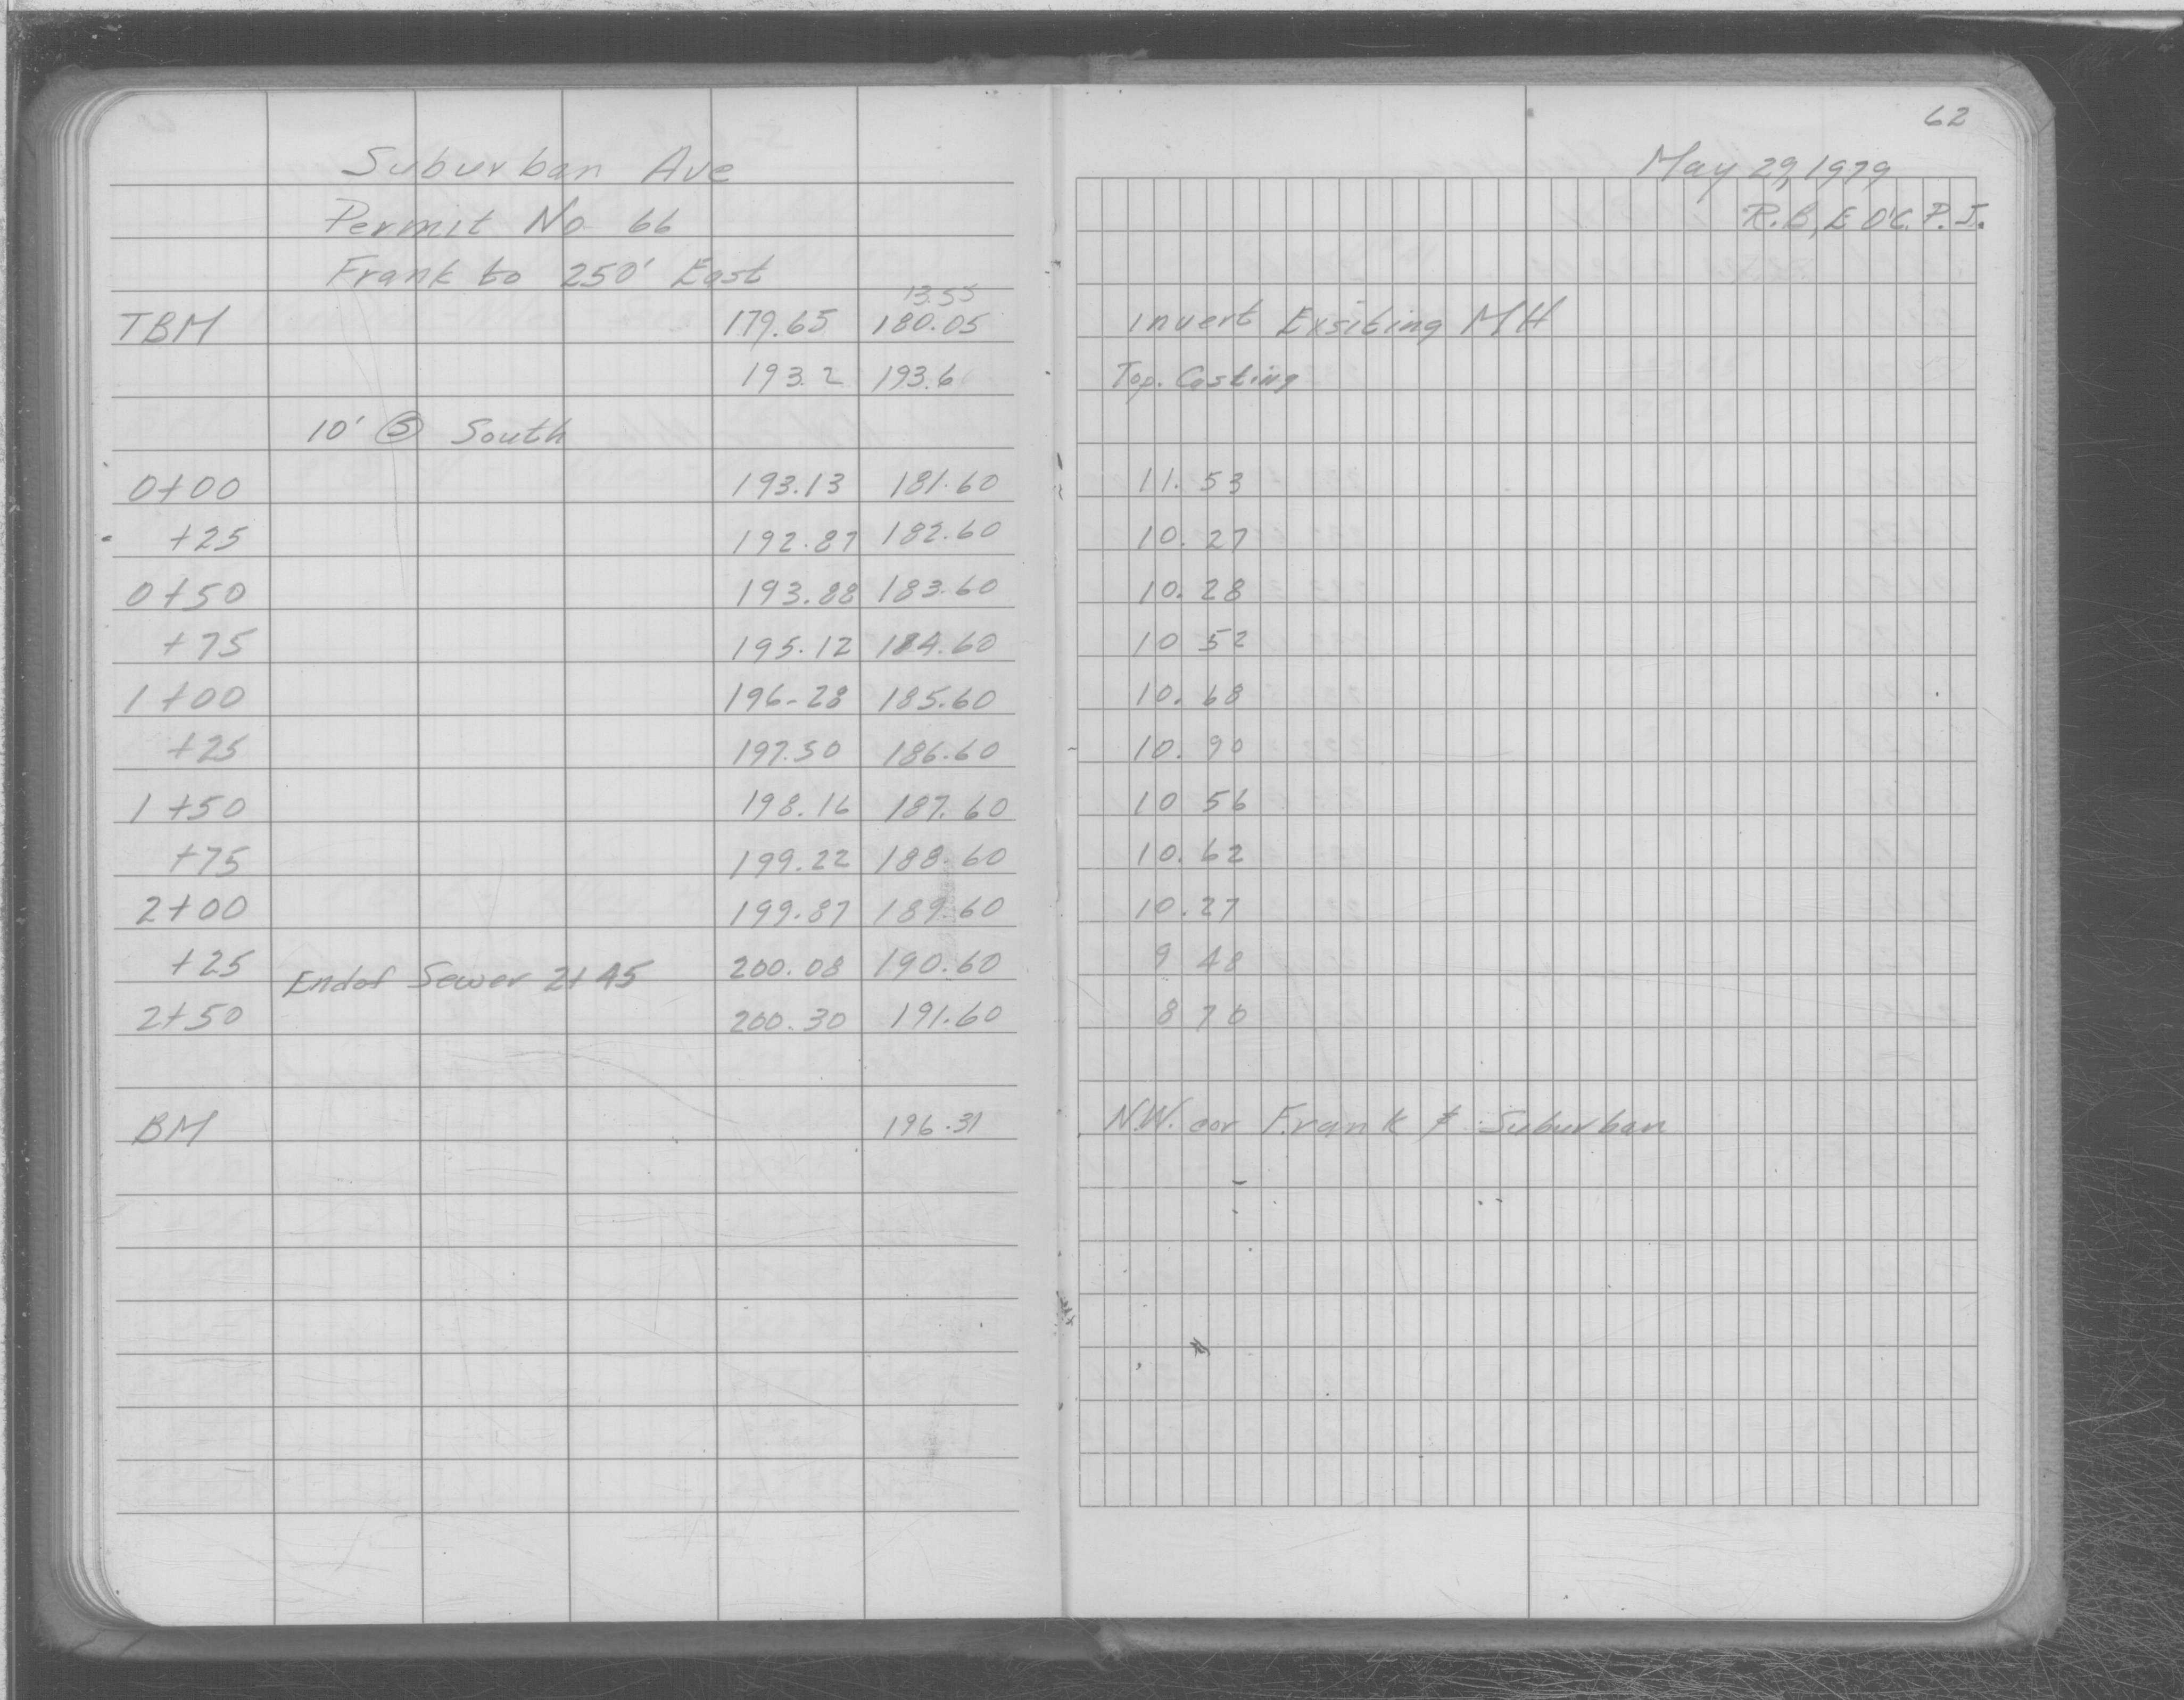 62
Suburban Ave May 29, 1979
Permit No 66 R.B, E O'C. P. J.
Frank to 250' East
13.55
TBM 179.65 180.05 invert Exsiting MH
193.2 193.6 Top. Casting
10' Ⓢ South
0+00 193.13 181.60 11.53
+25 192.87 182.60 10.27
0+50 193.88 183.60 10.28
+75 195.12 184.60 10 52
1+00 196-28 185.60 10.68
+25 197.50 186.60 10.90
1+50 198.16 187.60 10 56
+75 199.22 188.60 10.62
2+00 199.87 189.60 10.27
+25 End of Sewer 2+45 200.08 190.60 9 48
2+50 200.30 191.60 8 70
BM 196.31 N.W. cor Frank & Suburban